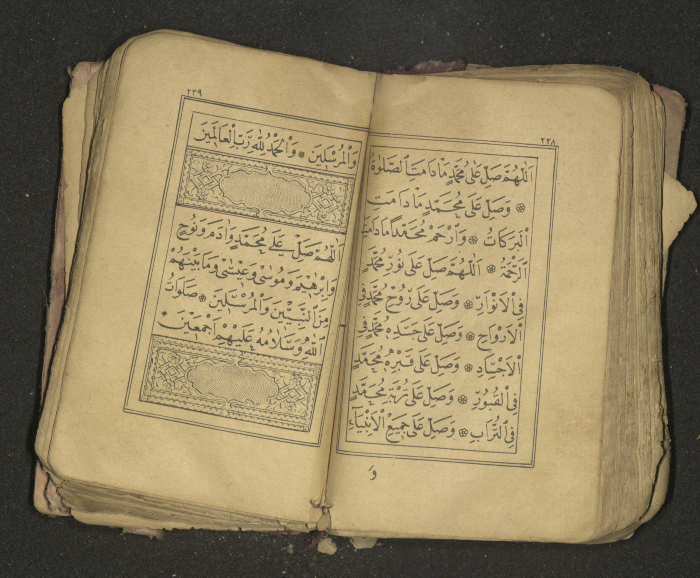 ٢٣٨
اَللّٰهُمَّ صَلِّ عَلٰى مُحَمَّدٍ مَا دَامَتِ الصَّلٰوةُ
۞ وَصَلِّ عَلٰى مُحَمَّدٍ مَا دَامَتِ
الْبَرَكَاتُ ۞ وَارْحَمْ مُحَمَّدًا مَا دَامَتِ
الرَّحْمَةُ ۞ اَللّٰهُمَّ صَلِّ عَلٰى نُورِ مُحَمَّدٍ
فِى الْاَنْوَارِ ۞ وَصَلِّ عَلٰى رُوحِ مُحَمَّدٍ فِى
الْاَرْوَاحِ ۞ وَصَلِّ عَلٰى جَسَدِ مُحَمَّدٍ فِى
الْاَجْسَادِ ۞ وَصَلِّ عَلٰى قَبْرِ مُحَمَّدٍ
فِى الْقُبُورِ ۞ وَصَلِّ عَلٰى تُرْبَةِ مُحَمَّدٍ
فِى التُّرَابِ ۞ وَصَلِّ عَلٰى جَمِيعِ الْاَنْبِيَآءِ
وَ
٢٣٩
وَالْمُرْسَلِينَ ۞ وَالْحَمْدُ لِلّٰهِ رَبِّ الْعَالَمِينَ
اَللّٰهُمَّ صَلِّ عَلٰى مُحَمَّدٍ وَاٰدَمَ وَنُوحٍ
وَاِبْرٰهِيمَ وَمُوسٰى وَعِيسٰى وَمَا بَيْنَهُمْ
مِنَ النَّبِيِّينَ وَالْمُرْسَلِينَ ۞ صَلَوَاتُ
اللّٰهِ وَسَلَامُهُ عَلَيْهِمْ اَجْمَعِينَ ۞